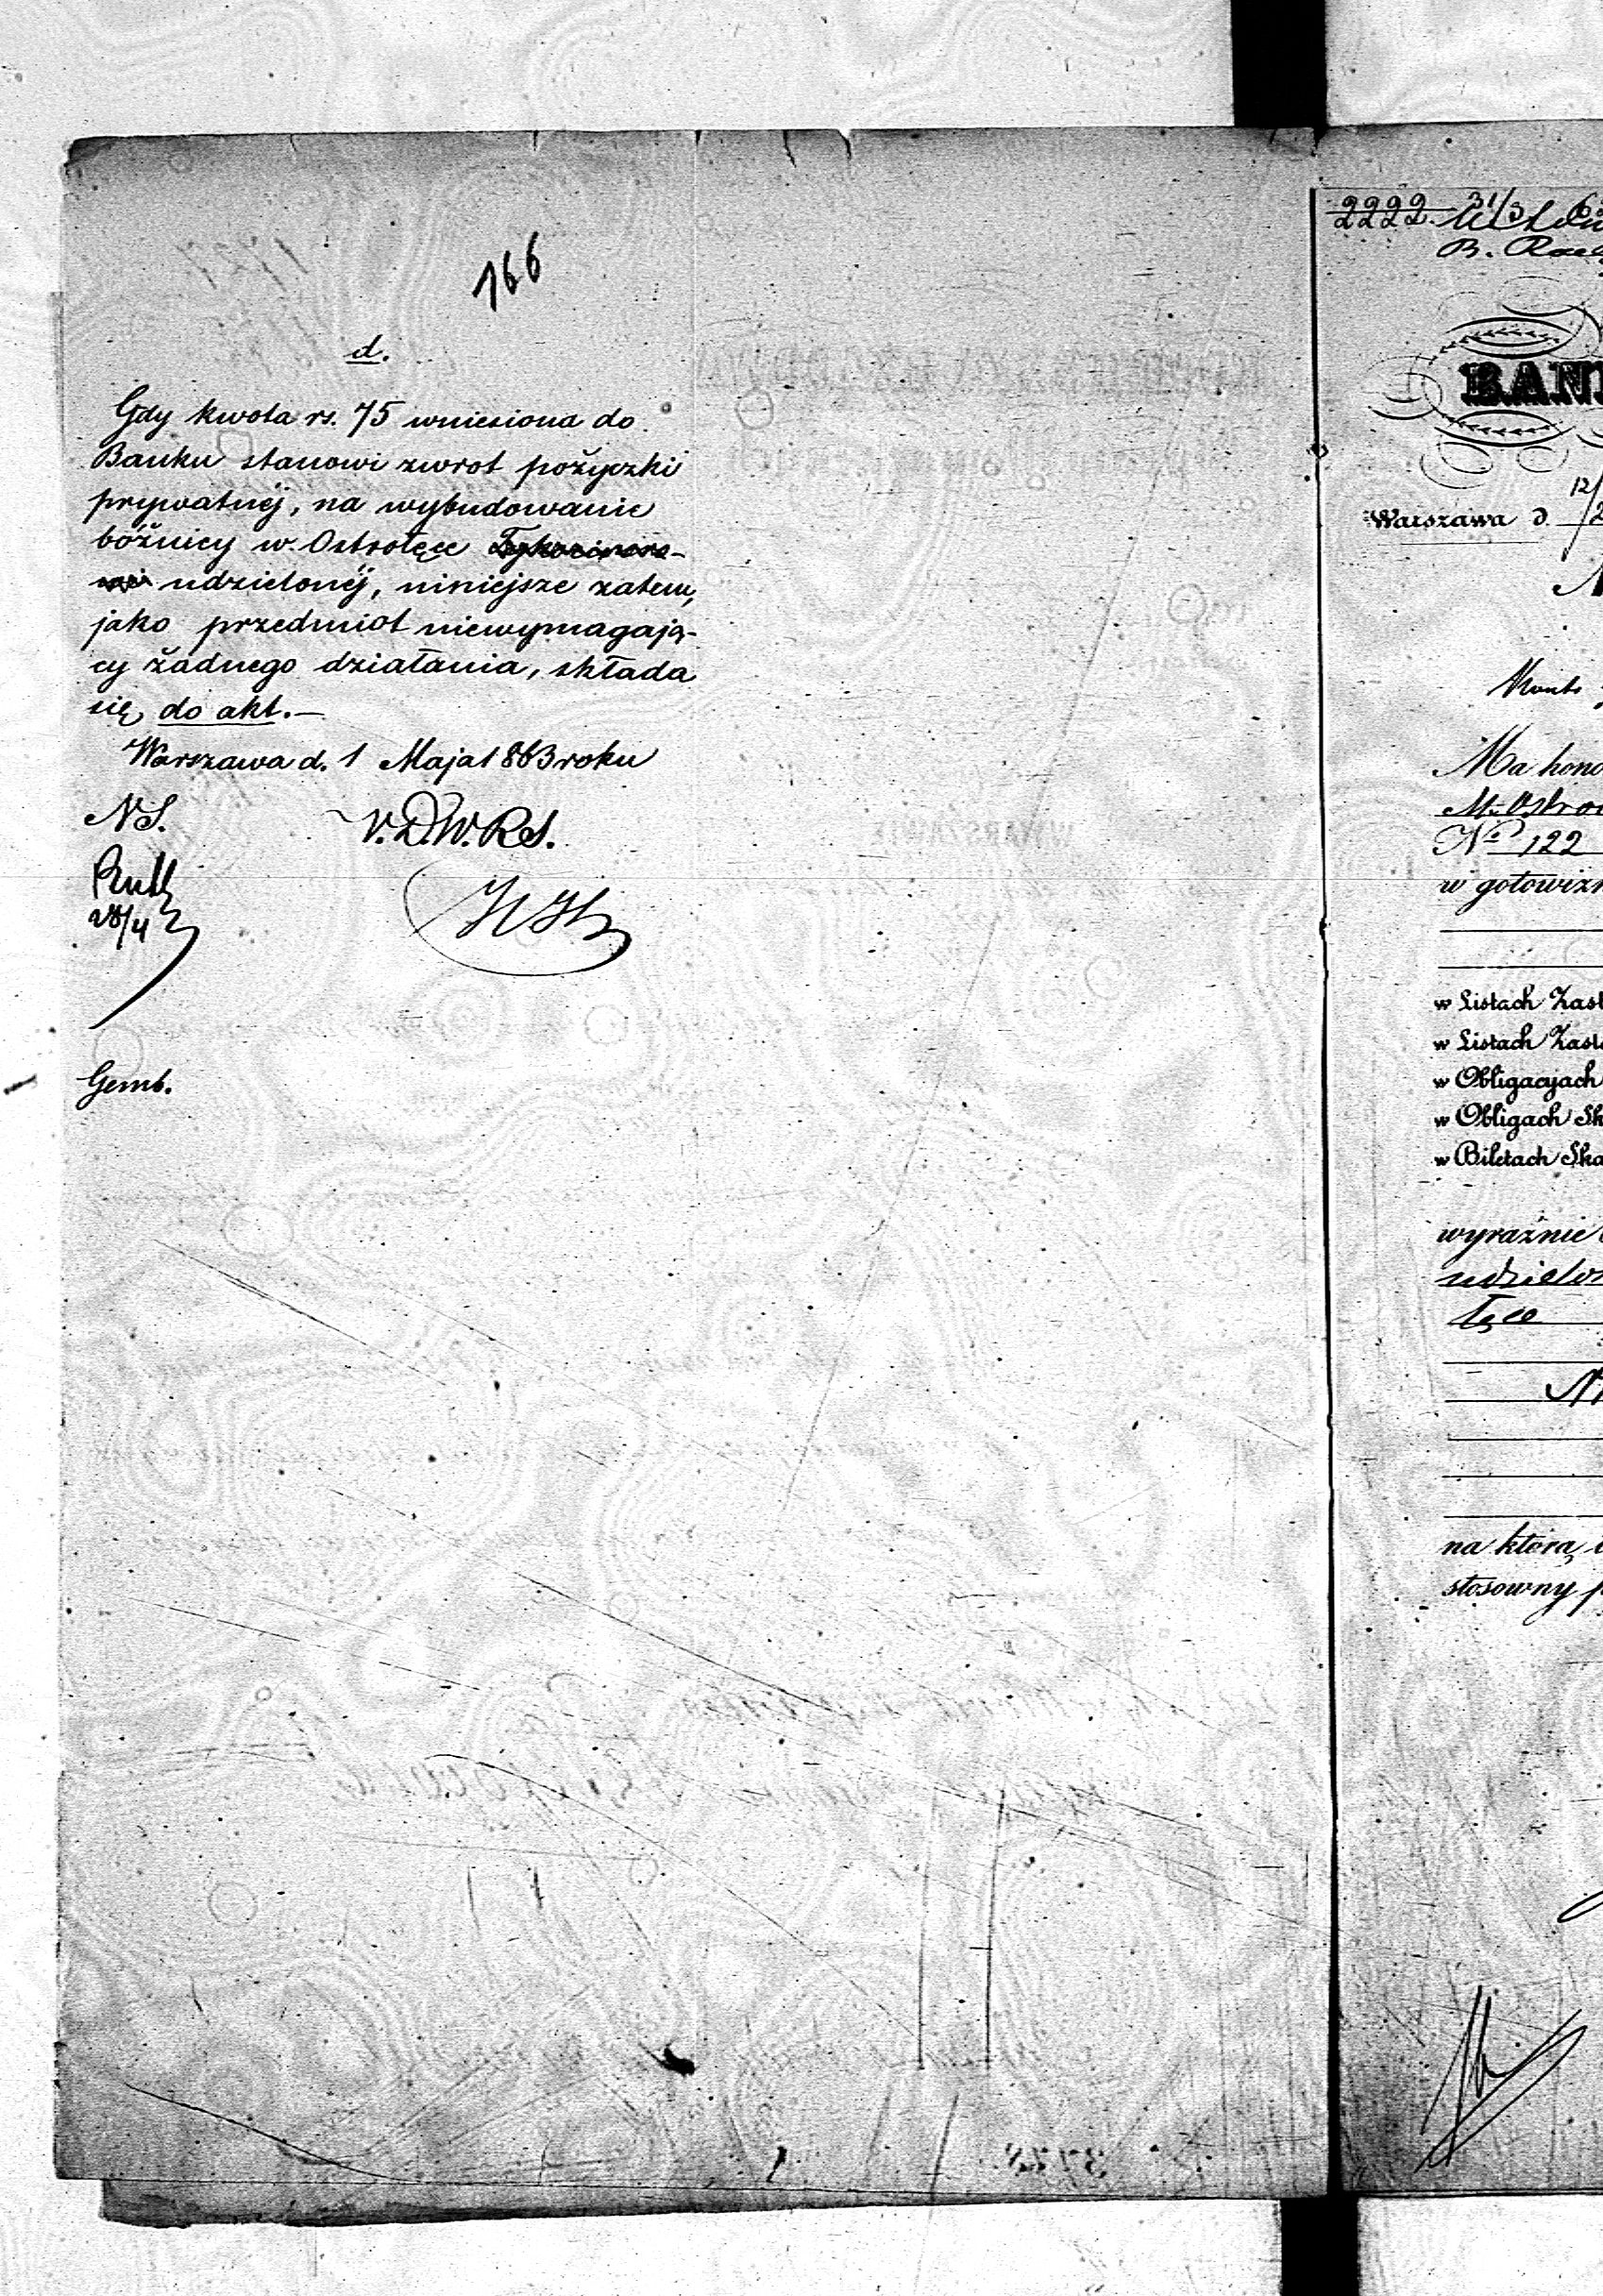 166
d.
Gdy kwota rs. 75 wniesiona do
Banku stanowi zwrot pożyczki
prywatnéj, na wybudowanie
bóżnicy w Ostrołęce
udzielonéj, niniejsze zatem,
jako przedmiot niewymagają-
cy żadnego działania, składa
się do akt.—
Warszawa d. 1 Maja 1863 roku
NS.
V.D.W.R.S.
28/4
Gemb.
2222. 31/3
B.
BAN
Warszawa d.
12/
Ma hono
M. Ostro
No 122
w gotowizn
w Listach Zast
w Listach Zast
w Obligacyach
w Obligach Sk
w Biletach Ska
wyraźnie
udzielon
łęce
na którą
stosowny p